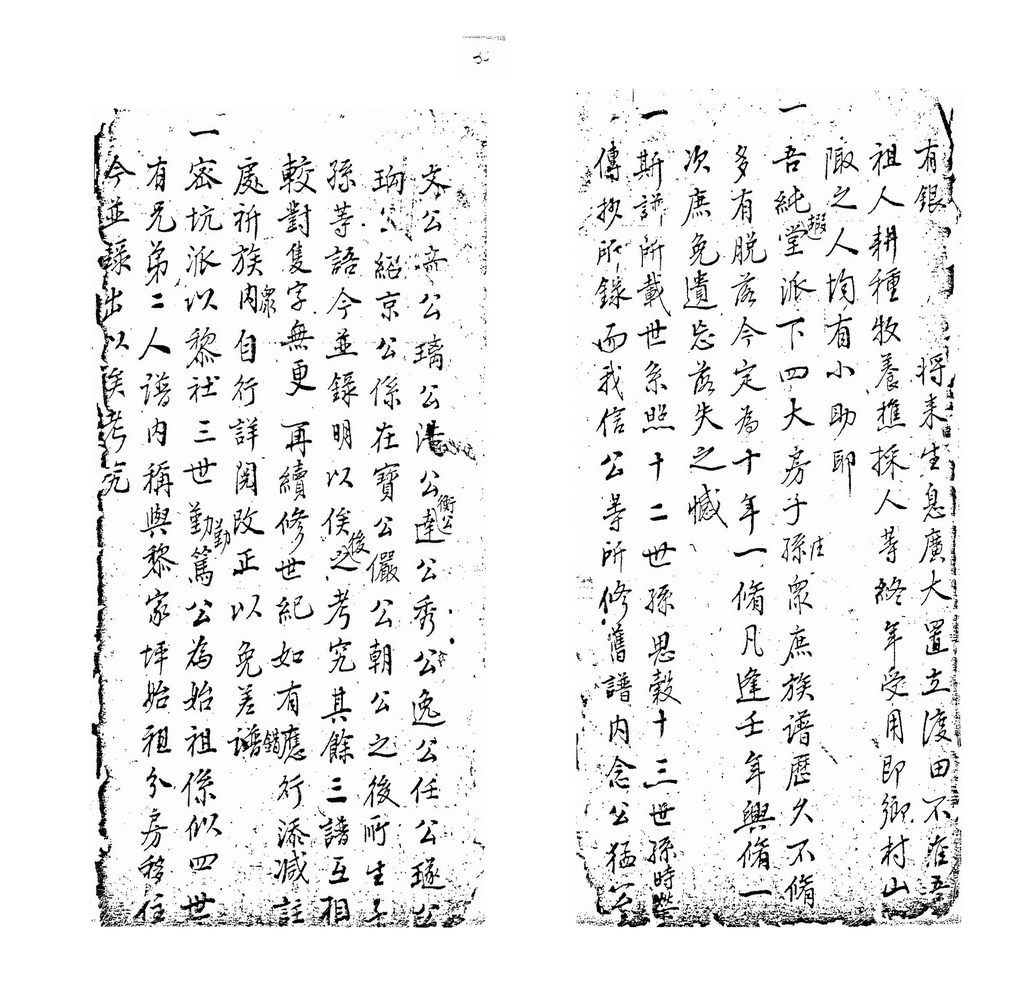 有銀 將來生息廣大置立渡田不在吾
祖人耕種牧養樵採人等終年受用即鄉村山
陬之人均有小助耶
一吾純嘏堂派下四大房子孫庄眾庶族譜歷久不脩
多有脫落今定為十年一脩凡逢壬年興脩一
次庶免遺忘落失之憾
一斯譜所載世系照十二世孫思穀十三世孫時
傳抄所錄而我信公等所修舊譜內念公猶
文公 公璃公浩公達衡公公秀公逸公任公璲公
珣公紹京公係在寶公儼公朝公之後所生子
孫等語今並錄明以俟後之考究其餘三譜互相
較對隻字無更 再續修世紀如有應行添減註
處祈族內眾自行詳閱改正以免差譜錯
一密坑派以黎社三世勤勤篤公為始祖係似四世
有兄弟二人譜內稱與黎家坪始祖分房移住
今並錄出以俟考究